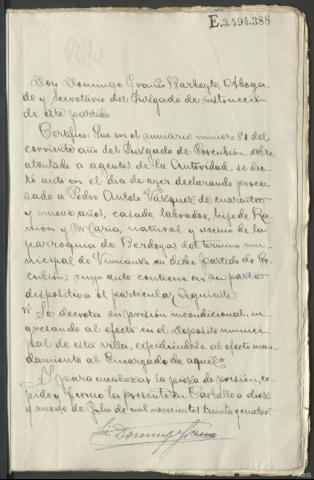 E.3.494.388
Don Domingo Barbeyto, Aboga-
do y Secretario del Juzgado de instrucción
de este partido.
Certifico: Que en el sumario número 81 del
corriente año del Juzgado de Corcubión, sobre
atentado a agentes de la Autoridad, se dic-
tó auto en el día de ayer declarando proce-
sado a Pedro Antelo Vázquez de cuarenta
y nueve años, casado, labrador, hijo de Ra-
món y María, natural y vecino de la
parroquia de Berdoyas del término mu-
nicipal de Vimianzo en dicho partido de Cor-
cubión; cuyo auto contiene en su parte
dispositiva el particular siguiente:
Se decreta en prisión incondicional, in-
gresando al efecto en el Depósito munici-
pal de esta villa, expidiéndose al efecto man-
damiento al Encargado de aquél.
Y para encabezar la pieza de prisión, ex-
pido y firmo la presente en Carballo a diez
y nueve de Julio de mil novecientos treinta y cuatro.
Domingo